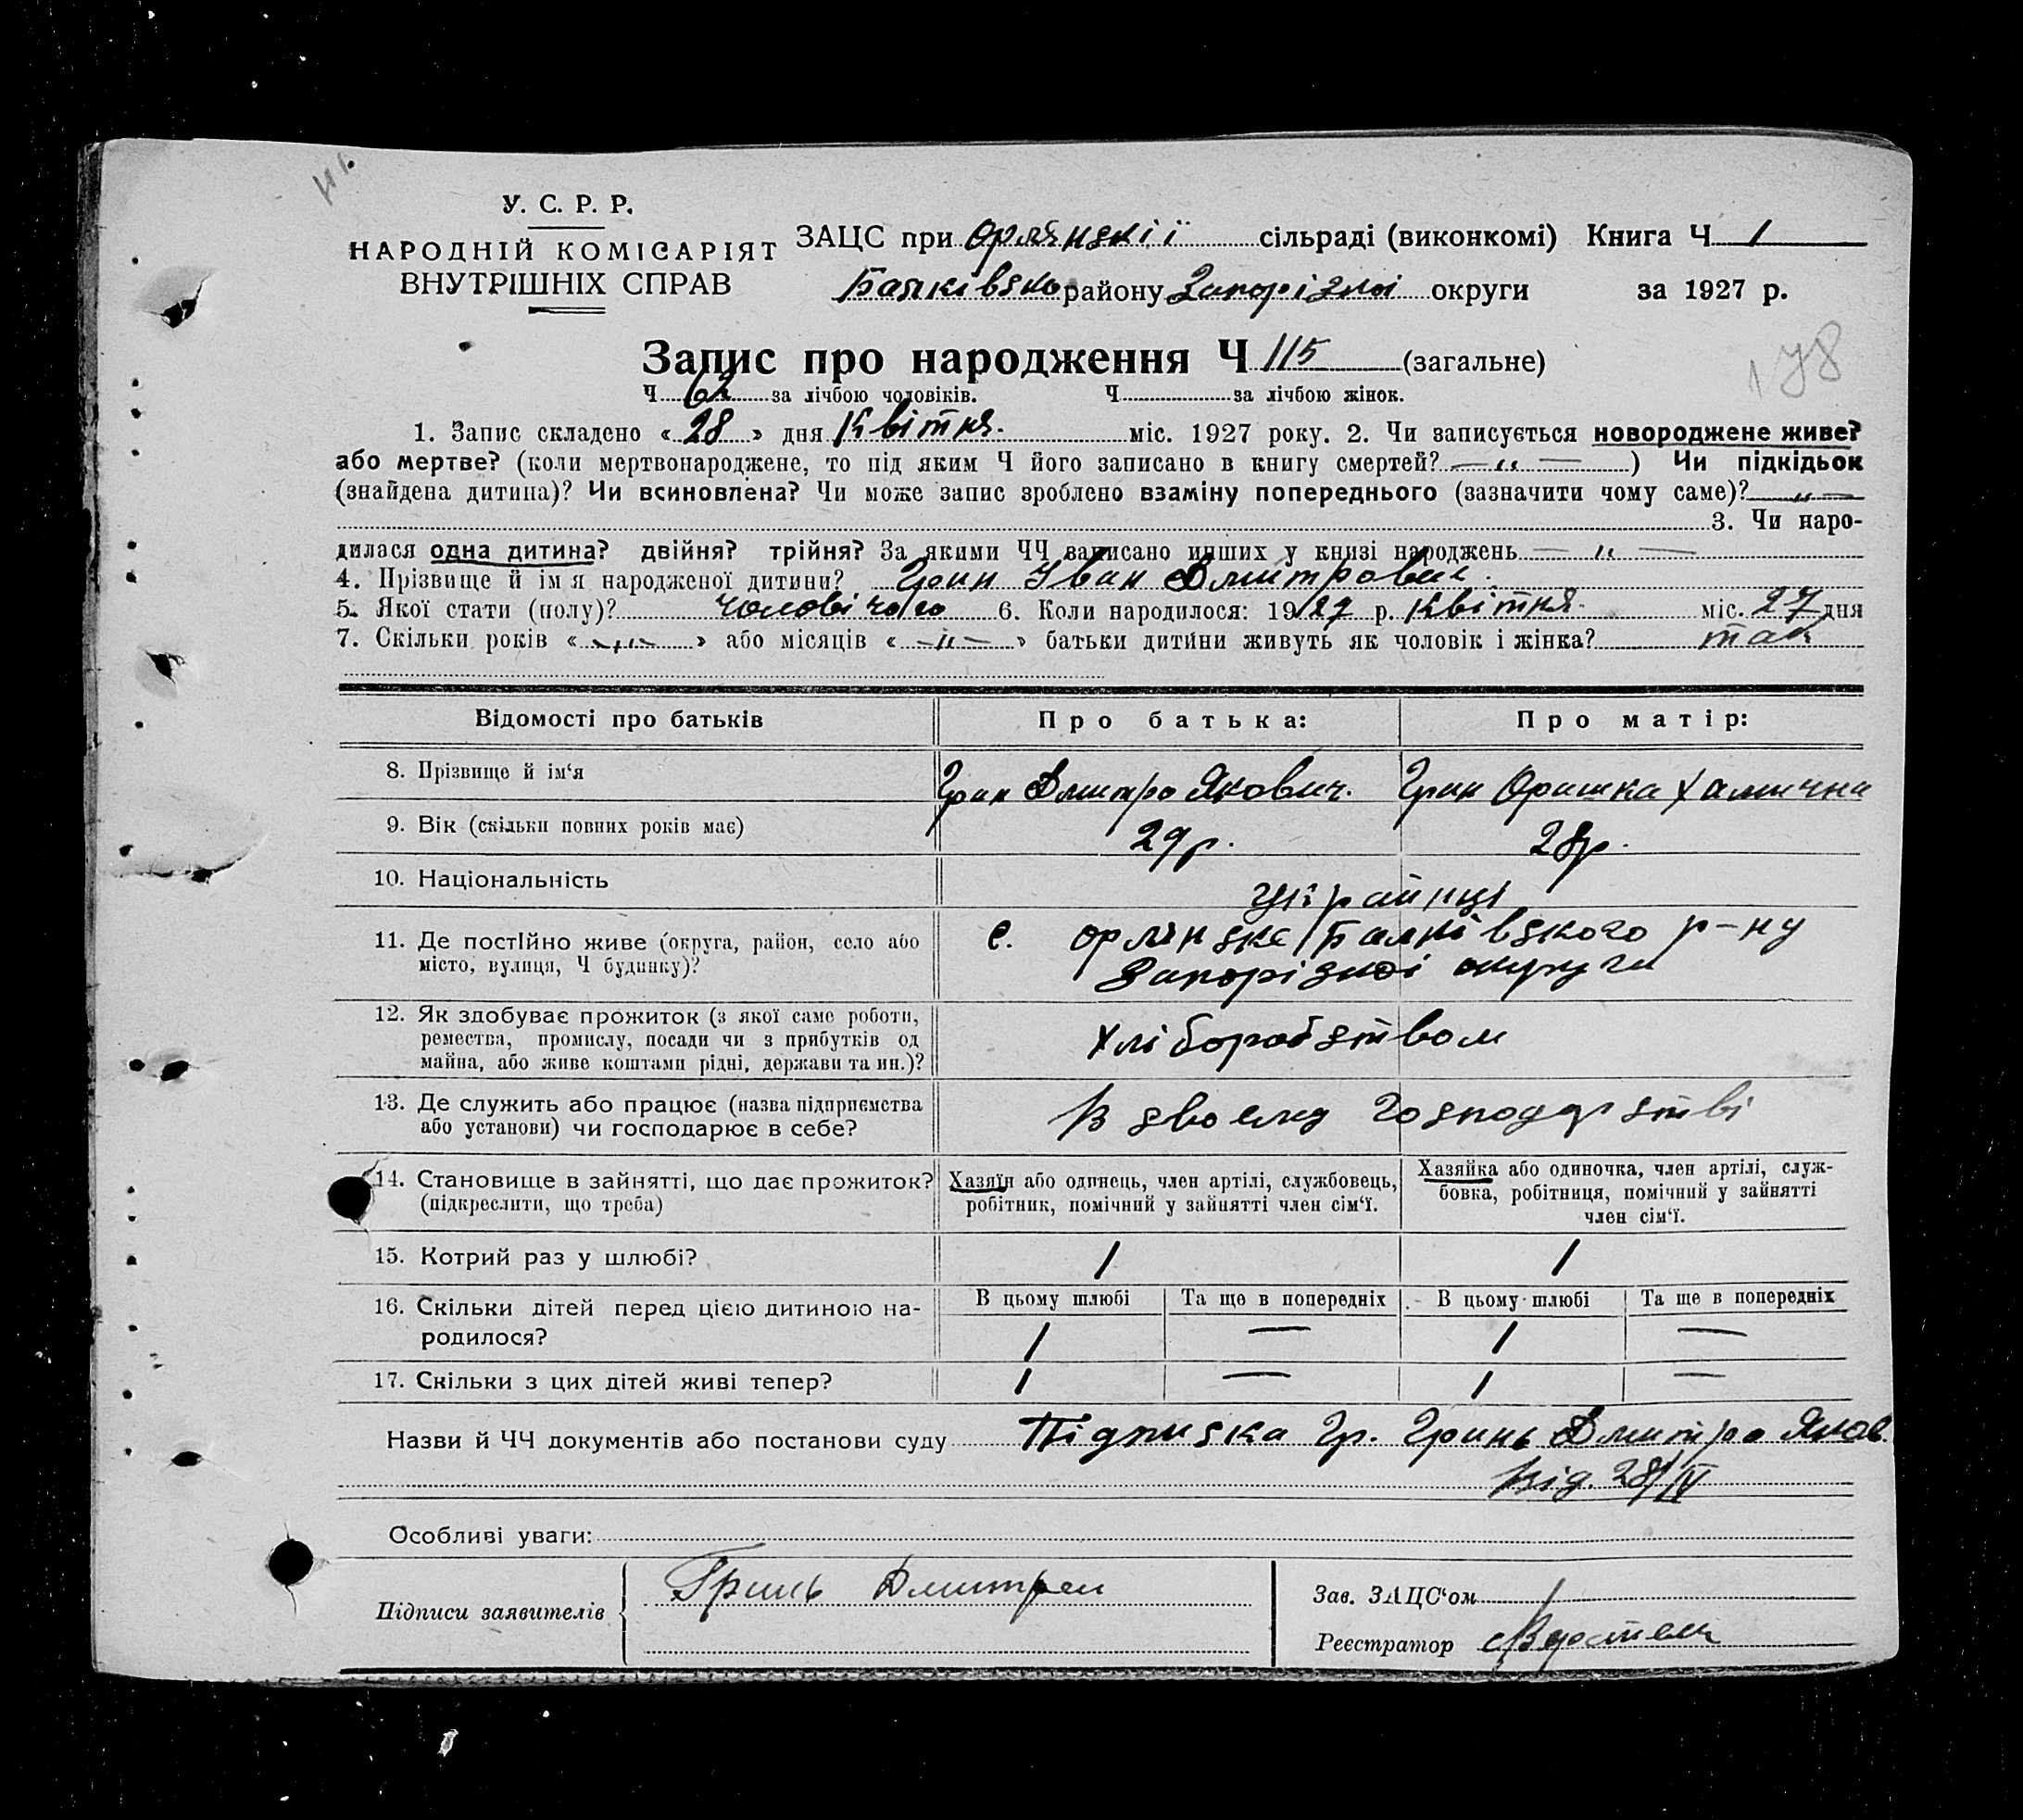 У. С. Р. Р.
НАРОДНІЙ КОМІСАРІЯТ
ВНУТРІШНІХ СПРАВ
ЗАЦС при Орлянскій сільраді (виконкомі) Книга Ч 1
району Запорізкої округи за 1927 р.
Запис про народження Ч 115 (загальне)
178
Ч 62 за лічбою чоловіків. Ч за лічбою жінок.
1. Запис складено « 28 » дня Квітня. міс. 1927 року. 2. Чи записується новороджене живе?
або мертве? (коли мертвонароджене, то під яким Ч його записано в книгу смертей? — „ — ) Чи підкідьок
(знайдена дитина)? Чи всиновлена? Чи може запис зроблено взаміну попереднього (зазначити чому саме)? „ —
3. Чи наро-
дилася одна дитина? двійня? трійня? За якими ЧЧ записано инших у книзі народжень — „ —
4. Прізвище й ім я народженої дитини? Грин Іван Дмитрович.
5. Якої стати (полу)? чоловічого 6. Коли народилося: 1927 р. Квітня. міс. 27 дня
7. Скільки років « — „ — » або місяців « — „ — » батьки дитини живуть як чоловік і жінка? так
Відомості про батьків Про батька: Про матір:
8. Прізвище й ім‘я Грин Дмитро Якович. Грин Оришка
9. Вік (скільки повних років має) 29 р. 28 р.
10. Національність українці
11. Де постійно живе (округа, район, село або
місто, вулиця, Ч будинку)?
с. Орлянске р-ну
Запорізкої округи
12. Як здобуває прожиток (з якої саме роботи,
ремества, промислу, посади чи з прибутків од
майна, або живе коштами рідні, держави та ин.)?
Хліборобством
13. Де служить або працює (назва підприємства
або установи) чи господарює в себе?
В своєму господарстві
14. Становище в зайнятті, що дає прожиток?
(підкреслити, що треба)
Хазяїн або одинець, член артілі, службовець,
робітник, помічний у зайнятті член сім‘ї.
Хазяйка або одиночка, член артілі, служ-
бовка, робітниця, помічний у зайнятті
член сім‘ї.
15. Котрий раз у шлюбі? 1 1
16. Скільки дітей перед цією дитиною на-
родилося?
В цьому шлюбі Та ще в попередніх В цьому шлюбі Та ще в попередніх
1 — 1 —
17. Скільки з цих дітей живі тепер? 1 — 1 —
Назви й ЧЧ документів або постанови суду Підписка Гр. Гринь Дмитро Яков.
Від. 28/IV
Особливі уваги:
Підписи заявителів Гринь Дмитрей
Зав. ЗАЦС‘ом
Реєстратор